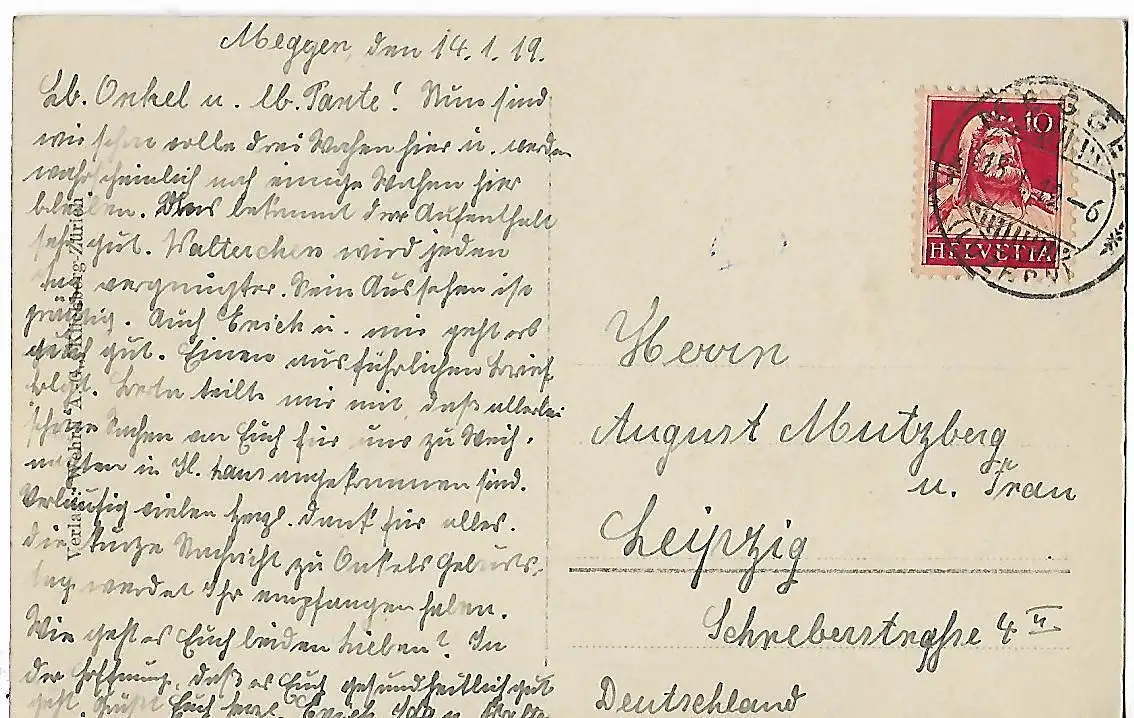 Meggen, den 14.1.19.
Lb. Onkel u. lb. Tante! Nun sind
wir schon volle drei Wochen hier u. werden
wahrscheinlich noch einige Wochen hier
bleiben. Uns bekommt der Aufenthalt
sehr gut. Walterchen wird jeden
Tag vergnügter. Sein Aussehen ist
prächtig. Auch Erich u. mir geht es
ganz gut. Einen ausführlichen Brief
folgt. Berta teilte mir mit, daß allerlei
schöne Sachen von Euch für uns zu Weih-
nachten in angekommen sind.
Vorläufig vielen herzl. Dank für alles.
Die kurze Nachricht zu Onkels Geburts-
tag werdet Ihr empfangen haben.
Wie geht es Euch beiden Lieben? In
der Hoffnung, daß es Euch gesundheitlich gut
geht, grüßt Euch herzl. Erich, u.
Verlag "Wehrli" A.-G., Kilchberg-Zürich
10
HELVETIA
MEGGEN
(LUZERN)
Herrn
August Mutzberg
u. Frau
Leipzig
Schreberstrasse 4 II
Deutschland